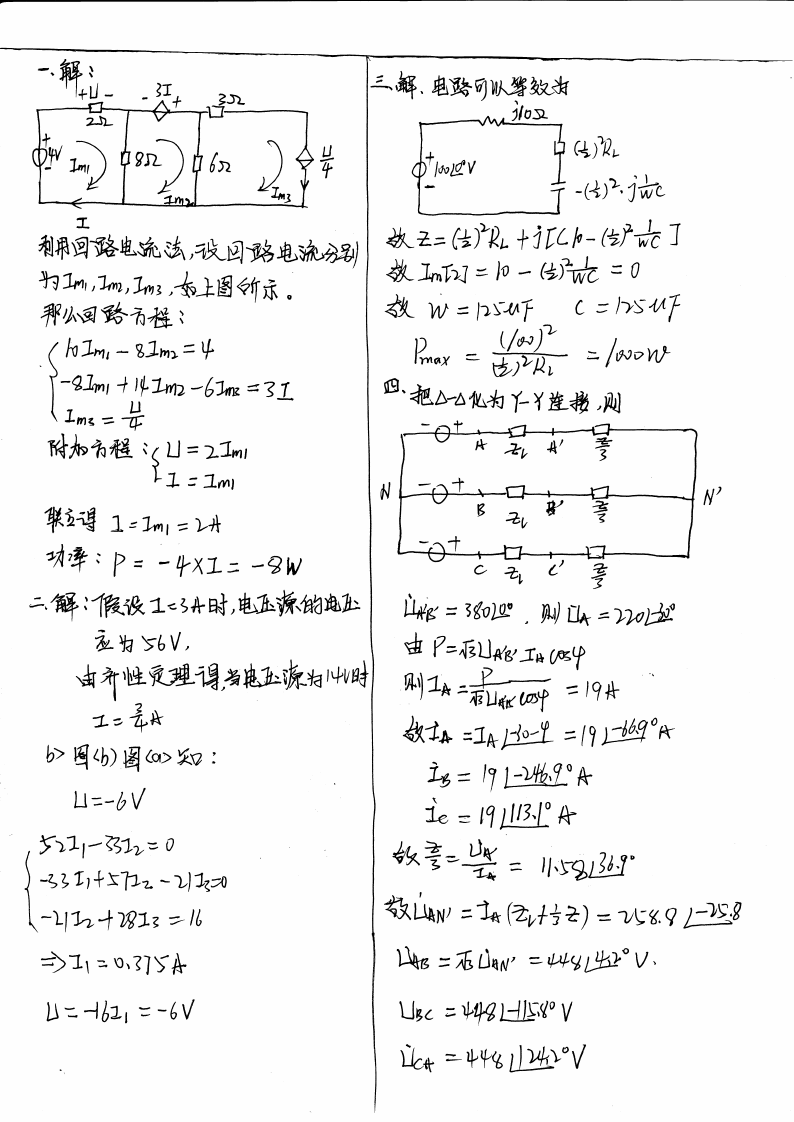 一、解：
+ U -
2Ω
- 3I +
3Ω
+
4V
-
Im1
8Ω
Im2
6Ω
Im3
U/4
I
利用回路电流法，设回路电流分别
为Im1, Im2, Im3, 如上图所示。
那么回路方程：
10Im1 - 8Im2 = 4
-8Im1 + 14Im2 - 6Im3 = 3I
Im3 = U/4
附加方程：U = 2Im1
I = Im1
联立得 I = Im1 = 2A
功率：P = -4×I = -8W
二、解：假设I=3A时，电压源的电压
应为56V，
由齐性定理得，当电压源为14V时
I = 3/4 A
b> 图(b)图(a)知：
U = -6V
52I1 - 33I2 = 0
-33I1 + 57I2 - 21I3 = 0
-21I2 + 28I3 = 16
⇒ I1 = 0.375A
U = -16I1 = -6V
三、解、电路可以等效为
j10Ω
+
100∠0°V
-
(½)²RL
-(½)²·j 1/WC
故 Z = (½)²RL + j[(10 - (½)² 1/WC ]
故 Im[Z] = 10 - (½)² 1/WC = 0
故 W = 125UF C = 125UF
Pmax = (100)²/(½)²RL = 1000W
四、把△-△化为Y-Y连接，则
- + A ZL A' Z/3
N - + B ZL B' Z/3 N'
- + C ZL C' Z/3
U̇A'B' = 380∠0°，则 U̇A = 220∠-30°
由 P = √3UA'B' IA cosφ
则 IA = P/√3UA'B' cosφ = 19A
故 İA = IA∠-30-φ = 19∠-66.9°A
İB = 19∠-246.9°A
İC = 19∠113.1°A
故 Z/3 = U̇A'/İA = 11.58∠36.9°
故 U̇AN' = İA(ZL + ⅓Z) = 258.9∠-25.8
U̇AB = √3U̇AN' = 448∠4.2°V.
UBC = 448∠-115.8°V
U̇CA = 448∠124.2°V